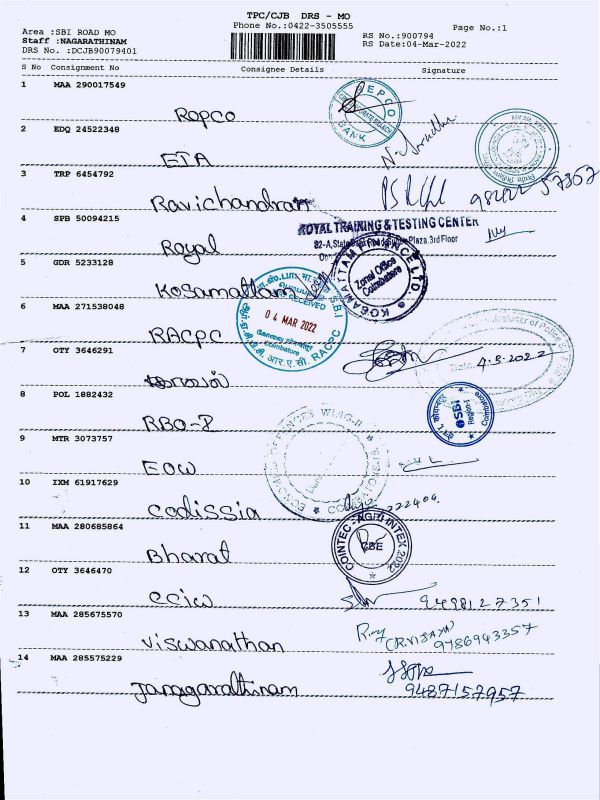 TPC/CJB DRS - MO
Phone No.:0422-3505555
Page No.:1
Area :SBI ROAD MO
RS No.:900794
Staff :NAGARATHINAM
RS Date:04-Mar-2022
DRS No. :DCJB90079401
S No Consignment No Consignee Details Signature
1 MAA 290017549
Repco
REPCO BANK
2 EDQ 24522348
ETA
3 TRP 6454792
Ravichandran
98422 57357
4 SPB 50094215
Royal
ROYAL TRAINING & TESTING CENTER
Plaza, 3rd Floor
5 GDR 5233128
Kosamattam
KOSAMATTAM FINANCE LTD.
Zonal Office
Coimbatore
6 MAA 271538048
RACPC
RECEIVED
04 MAR 2022
Coimbatore
S.B.I RACPC
7 OTY 3646291
4.3.2022
8 POL 1882432
RBO-2
SBI
9 MTR 3073757
EOW
10 IXM 61917629
Codissia
11 MAA 280685864
Bharat
COINTEC - AGRI INTEX 2022
CBE
12 OTY 3646470
CCIW
9498127351
13 MAA 285675570
Viswanathan
(R.VIJAYA)
9786943357
14 MAA 285575229
9487157957